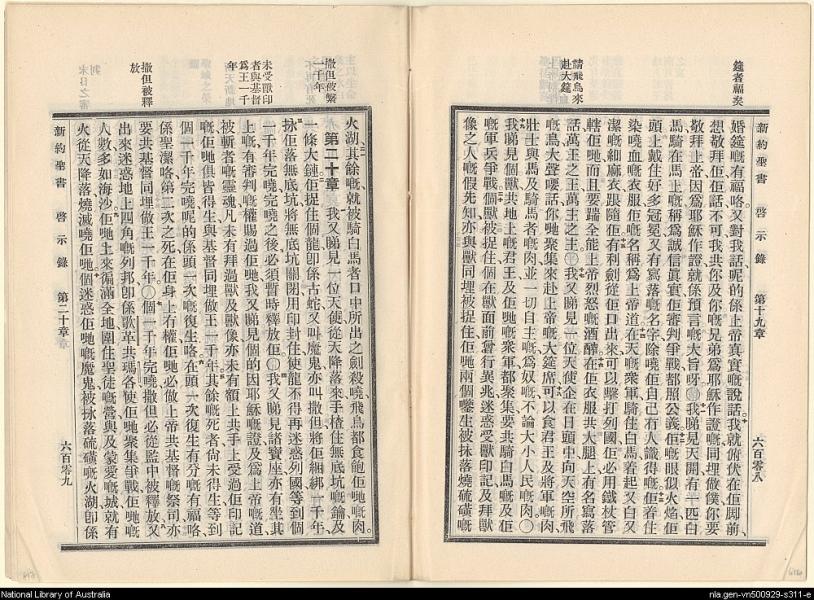 新約聖書 啓示錄 第十九章 六百零八
鐘者福矣
請飛鳥來
赴大筵
婚筵嘅有福咯又對我話呢的係上帝真實嘅說話我就俯伏在佢脚前
想敬拜佢佢話不可我共你及你嘅兄弟爲耶穌作證嘅同埋做僕你要
敬拜上帝因爲耶穌作證就係預言嘅大旨呀〇我睇見天開有一匹白
馬騎在馬上嘅稱爲誠信眞實佢審判爭戰都照公義佢嘅眼似火焰佢
頭上戴住好多冠冕又有寫落嘅名字除曉佢自己冇人識得嘅佢着住
染曉血嘅衣服佢嘅名稱爲上帝道在天嘅衆軍騎住白馬着起又白又
潔嘅細麻衣跟隨佢有利劍從佢口出來可以擊打列國佢必用鐵杖管
轄佢哋而且要踹全能上帝烈怒嘅酒醡在佢衣服共大腿上有名寫落
話萬王之王萬主之主〇我又睇見一位天使企在日頭中向天空所飛
嘅鳥大聲嘤話你哋聚集來赴上帝嘅大筵席可以食君王及將軍嘅肉
壯士與馬及騎馬者嘅肉並一切自主嘅爲奴嘅不論大小人民嘅肉〇
我睇見個獸共地上嘅君王及佢哋嘅衆軍都聚集要共騎白馬嘅及佢
嘅軍兵爭戰個獸被捉住個在獸面前曾行異兆迷惑受獸印記及拜獸
像之人嘅假先知亦與獸同埋被捉住佢哋兩個鑒生被抹落燒硫磺嘅
撒但被繫
一千年
未受獸印
者與基督
爲王一千
年
撒但被釋
放
火湖其餘嘅就被騎白馬者口中所出之劍殺曉飛鳥都食飽佢哋嘅肉
第二十章 我又睇見一位天使從天降落來手揸住無底坑嘅鑰及
一條大鏈佢捉住個龍卽係古蛇又叫魔鬼亦叫撒但將佢綑綁一千年
抹佢落無底坑將無底坑關閉用印封住使龍不得再迷惑列國等到個
一千年完曉完曉之後必須暫時釋放佢〇我又睇見諸寶座亦有坐其
上嘅有審判嘅權賜過佢哋我又睇見個的因耶穌嘅證及爲上帝嘅道
被斬者嘅靈魂凡未有拜過獸及獸像亦未有額上共手上受過佢印記
嘅佢哋俱皆得生與基督同埋做王一千年其餘嘅死者尙未得生等到
個一千年完曉呢的係頭一次嘅復生咯在頭一次復生有分嘅有福咯
係聖潔咯第二次之死在佢身上冇權佢哋必做上帝共基督嘅祭司亦
要共基督同埋做王一千年〇個一千年完曉撒但必從監中被釋放又
出來迷惑地上四角嘅列邦卽係歌革共瑪各使佢哋聚集爭戰佢哋嘅
人數多如海沙佢哋上來徧滿全地圍住聖徒嘅營與及蒙愛嘅城就有
火從天降落燒滅曉佢哋個迷惑佢哋嘅魔鬼被抹落硫磺嘅火湖卽係
新約聖書 啓示錄 第二十章 六百零九
National Library of Australia
nla.gen-vn500929-s311-e